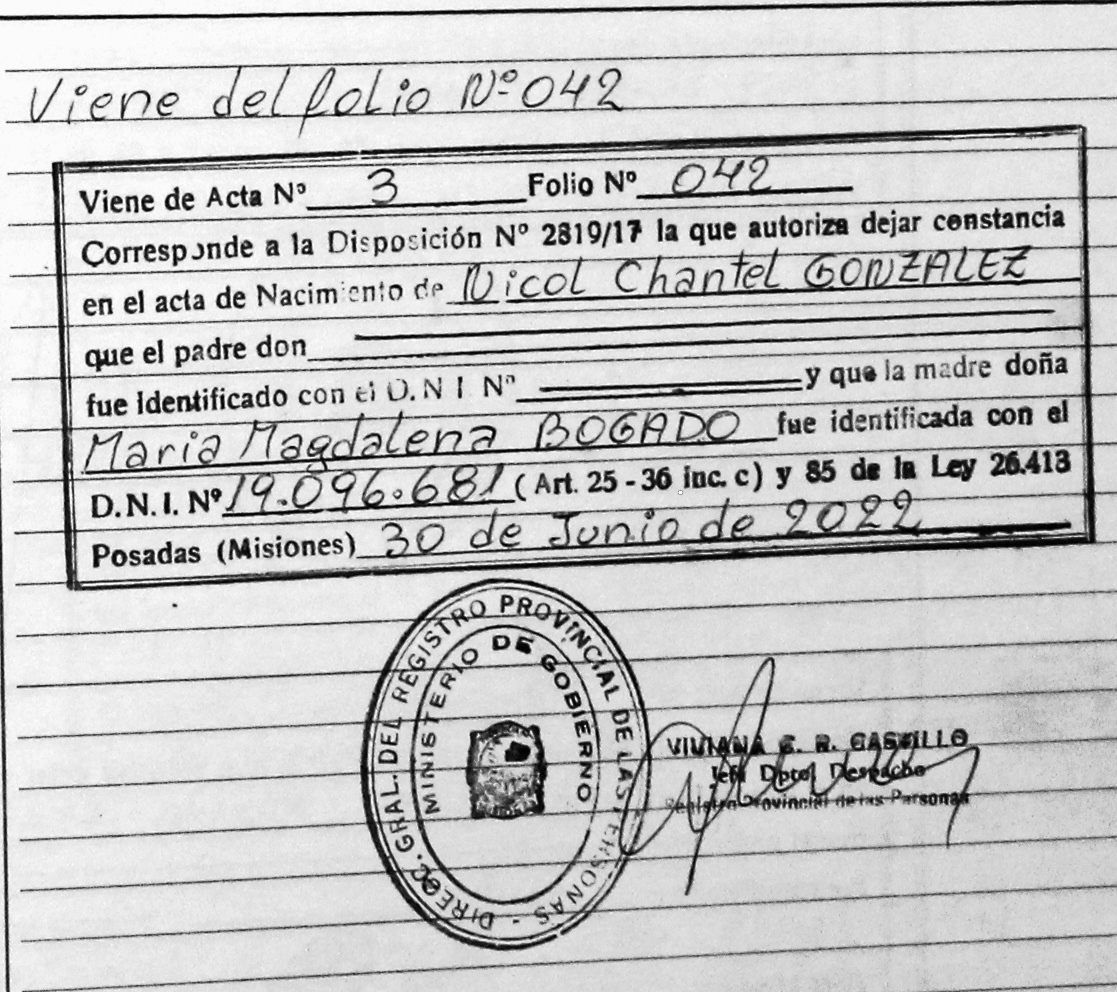 Viene del folio Nº 042
Viene de Acta Nº 3 Folio Nº 042
Corresponde a la Disposición Nº 2819/17 la que autoriza dejar constancia
en el acta de Nacimiento de Nicol Chantel GONZALEZ
que el padre don
fue identificado con el D.N I Nº y que la madre doña
Maria Magdalena BOGADO fue identificada con el
D.N.I. Nº 19.096.681 (Art. 25 - 36 inc. c) y 85 de la Ley 26.413
Posadas (Misiones) 30 de Junio de 2022
DIRECC. GRAL. DEL REGISTRO PROVINCIAL DE LAS PERSONAS -
MINISTERIO DE GOBIERNO
VIVIANA E. R. CASTILLO
Jefe Dpto. Despacho
Registro Provincial de las Personas